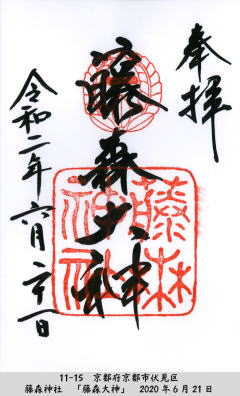 奉拝
藤森大神
藤森神社
令和二年六月二十一日
11-15 京都府京都市伏見区
藤森神社 「藤森大神」 2020年6月21日